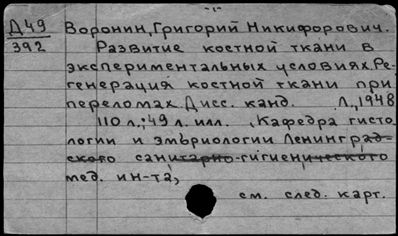 Д 49 Воронин, Григорий Никифорович.
392 Развитие костной ткани в
экспериментальных условиях. Ре-
генерация костной ткани при
переломах. Дисс. канд. Л., 1948
110 л.; 49 л. илл. (Кафедра гисто
логии и эмбриологии Ленинград-
ского санитарно-гигиенического
мед. ин-та,
см. след. карт.